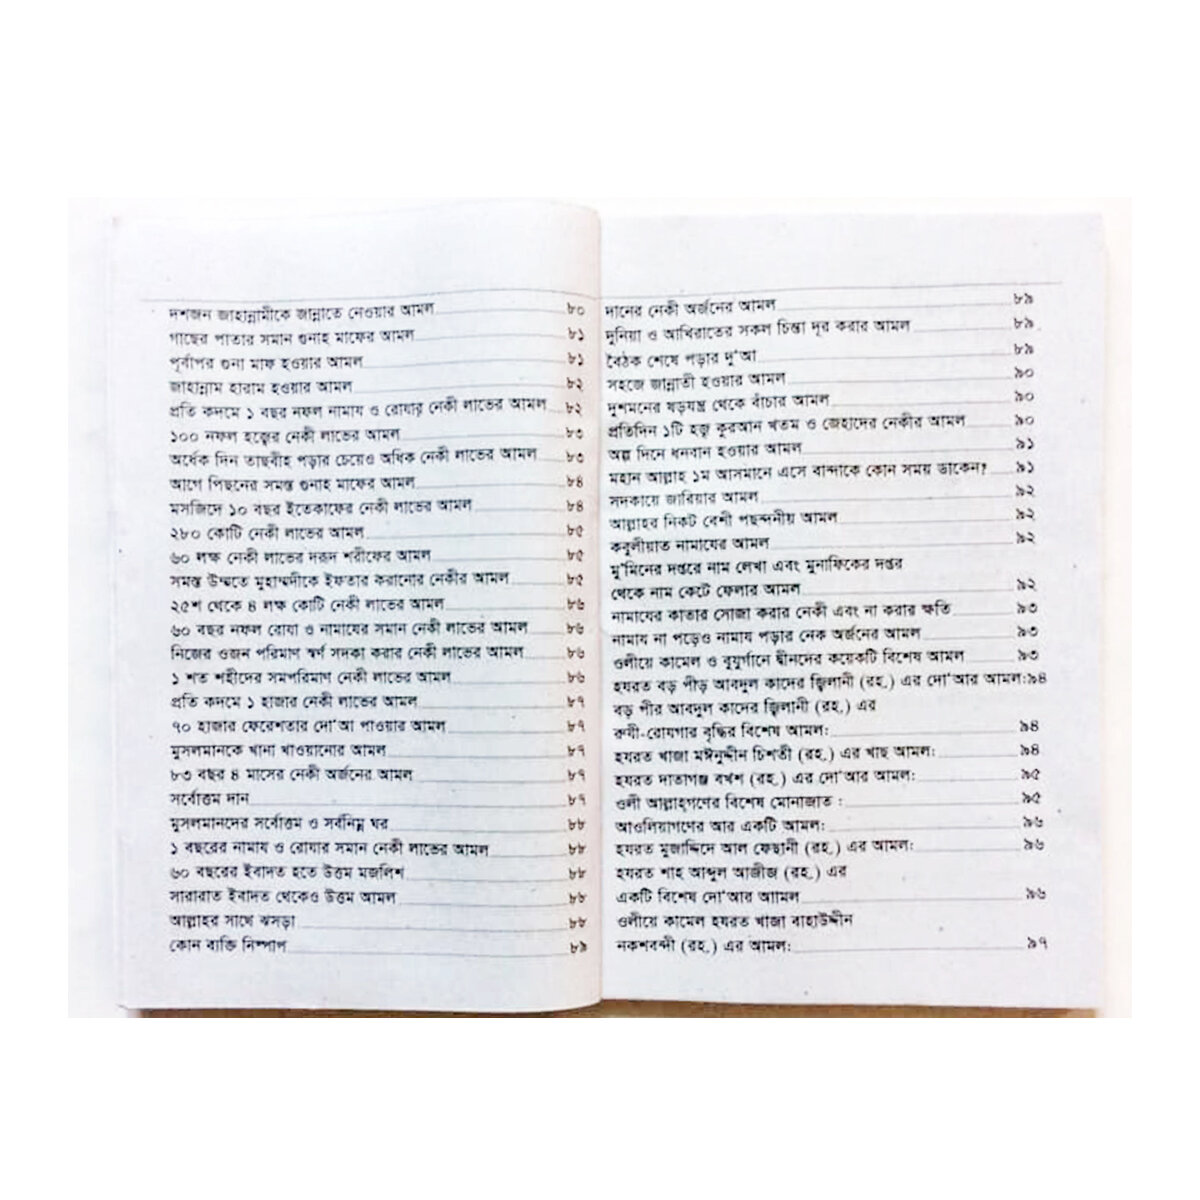 দশজন জাহান্নামীকে জান্নাতে নেওয়ার আমল ৮০
গাছের পাতার সমান গুনাহ মাফের আমল ৮১
পূর্বাপর গুনা মাফ হওয়ার আমল ৮১
জাহান্নাম হারাম হওয়ার আমল ৮২
প্রতি কদমে ১ বছর নফল নামায ও রোযার নেকী লাভের আমল ৮২
১০০ নফল হজ্বের নেকী লাভের আমল ৮৩
অর্ধেক দিন তাছবীহ পড়ার চেয়েও অধিক নেকী লাভের আমল ৮৩
আগে পিছনের সমস্ত গুনাহ মাফের আমল ৮৪
মসজিদে ১০ বছর ইতেকাফের নেকী লাভের আমল ৮৪
২৮০ কোটি নেকী লাভের আমল ৮৫
৬০ লক্ষ নেকী লাভের দরূদ শরীফের আমল ৮৫
সমস্ত উম্মতে মুহাম্মদীকে ইফতার করানোর নেকীর আমল ৮৫
২৫শ থেকে ৪ লক্ষ কোটি নেকী লাভের আমল ৮৬
৬০ বছর নফল রোযা ও নামাযের সমান নেকী লাভের আমল ৮৬
নিজের ওজন পরিমাণ স্বর্ণ সদকা করার নেকী লাভের আমল ৮৬
১ শত শহীদের সমপরিমাণ নেকী লাভের আমল ৮৬
প্রতি কদমে ১ হাজার নেকী লাভের আমল ৮৭
৭০ হাজার ফেরেশতার দো'আ পাওয়ার আমল ৮৭
মুসলমানকে খানা খাওয়ানোর আমল ৮৭
৮৩ বছর ৪ মাসের নেকী অর্জনের আমল ৮৭
সর্বোত্তম দান ৮৭
মুসলমানদের সর্বোত্তম ও সর্বনিম্ন ঘর ৮৮
১ বছরের নামায ও রোযার সমান নেকী লাভের আমল ৮৮
৬০ বছরের ইবাদত হতে উত্তম মজলিশ ৮৮
সারারাত ইবাদত থেকেও উত্তম আমল ৮৮
আল্লাহর সাথে ঝসড়া ৮৮
কোন ব্যক্তি নিষ্পাপ ৮৯
দানের নেকী অর্জনের আমল ৮৯
দুনিয়া ও আখিরাতের সকল চিন্তা দূর করার আমল ৮৯
বৈঠক শেষে পড়ার দু'আ ৮৯
সহজে জান্নাতী হওয়ার আমল ৯০
দুশমনের ষড়যন্ত্র থেকে বাঁচার আমল ৯০
প্রতিদিন ১টি হজ্ব কুরআন খতম ও জেহাদের নেকীর আমল ৯০
অল্প দিনে ধনবান হওয়ার আমল ৯১
মহান আল্লাহ ১ম আসমানে এসে বান্দাকে কোন সময় ডাকেন? ৯১
সদকায়ে জারিয়ার আমল ৯২
আল্লাহর নিকট বেশী পছন্দনীয় আমল ৯২
কবুলীয়াত নামাযের আমল ৯২
মু'মিনের দপ্তরে নাম লেখা এবং মুনাফিকের দপ্তর
থেকে নাম কেটে ফেলার আমল ৯২
নামাযের কাতার সোজা করার নেকী এবং না করার ক্ষতি ৯৩
নামায না পড়েও নামায পড়ার নেক অর্জনের আমল ৯৩
ওলীয়ে কামেল ও বুযুর্গানে দ্বীনদের কয়েকটি বিশেষ আমল ৯৩
হযরত বড় পীড় আবদুল কাদের জ্বিলানী (রহ.) এর দো'আর আমল: ৯৪
বড় পীর আবদুল কাদের জ্বিলানী (রহ.) এর
রুযী-রোযগার বৃদ্ধির বিশেষ আমল: ৯৪
হযরত খাজা মঈনুদ্দীন চিশতী (রহ.) এর খাছ আমল: ৯৪
হযরত দাতাগঞ্জ বখশ (রহ.) এর দো'আর আমল: ৯৫
ওলী আল্লাহ্গণের বিশেষ মোনাজাত : ৯৫
আওলিয়াগণের আর একটি আমল: ৯৬
হযরত মুজাদ্দিদে আল ফেছানী (রহ.) এর আমল: ৯৬
হযরত শাহ আব্দুল আজীজ (রহ.) এর
একটি বিশেষ দো'আর আামল ৯৬
ওলীয়ে কামেল হযরত খাজা বাহাউদ্দীন
নকশবন্দী (রহ.) এর আমল: ৯৭